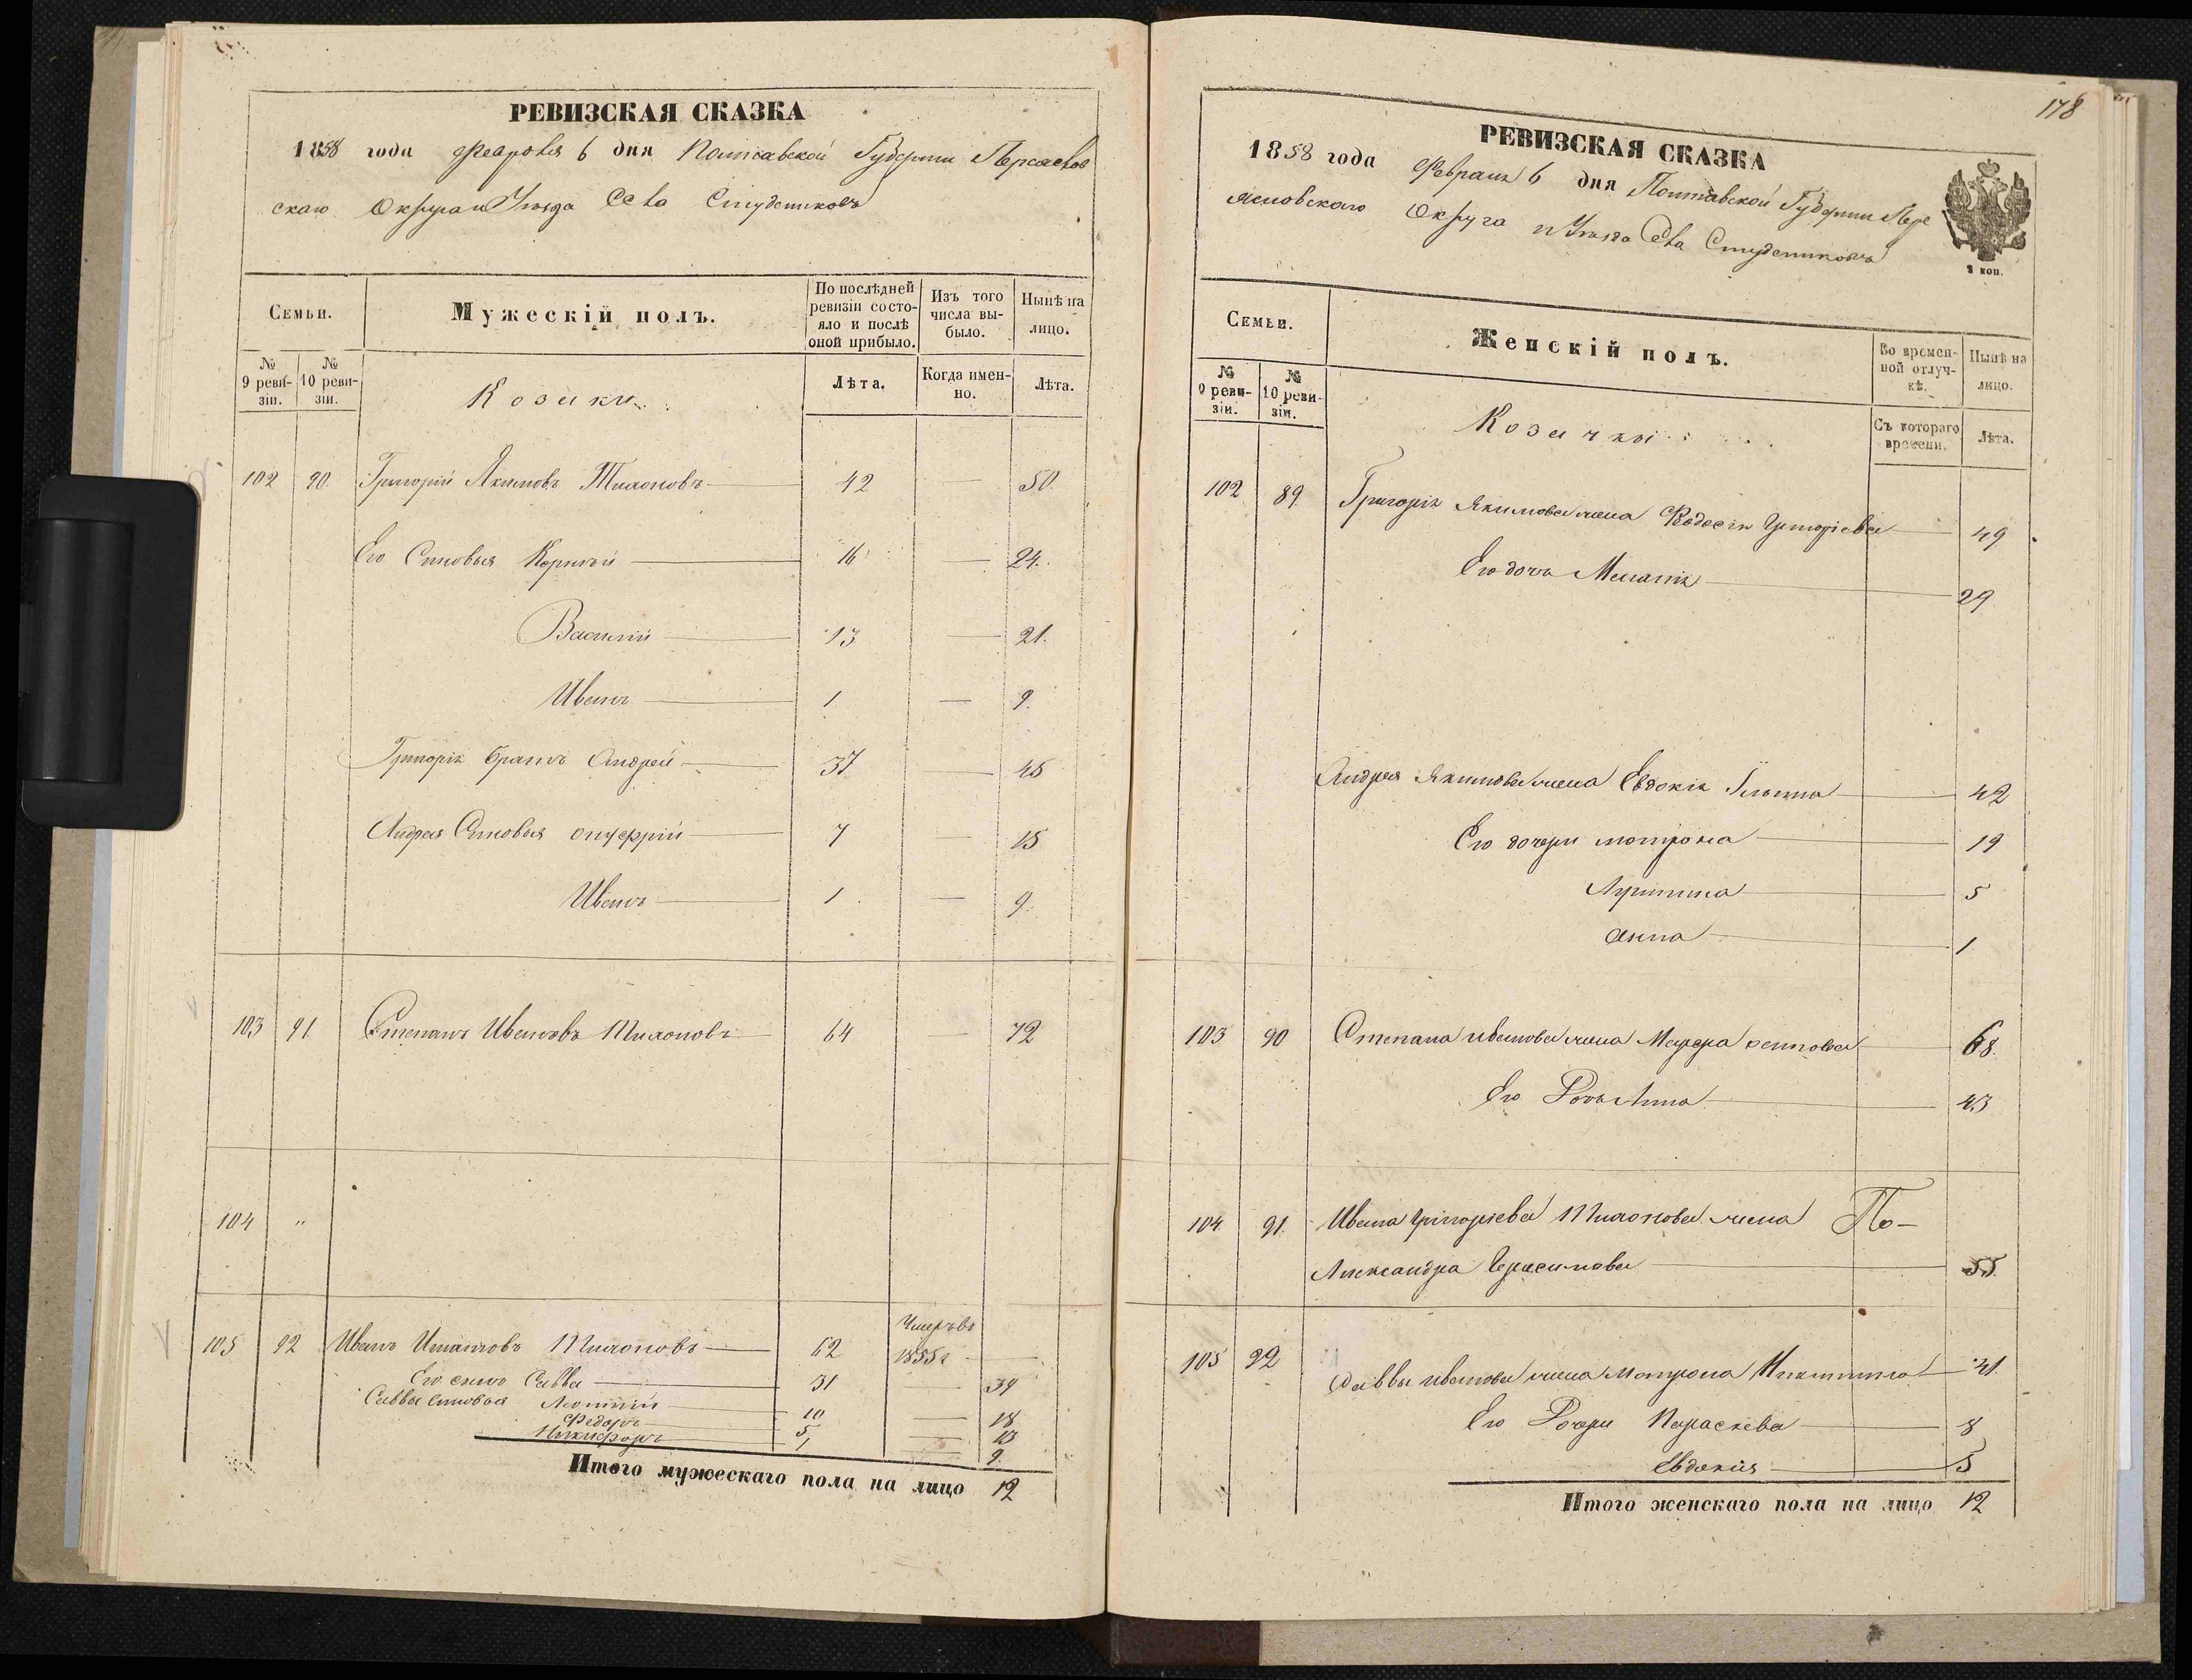 РЕВИЗСКАЯ СКАЗКА
1858 года Февраля 6 дня Полтавской Губернии Переяслов
скаго Округа и Уѣзда Села Студениковъ
Семьи.
Мужескій полъ.
По послѣдней ревизіи состояло и послѣ оной прибыло.
Изъ того числа выбыло.
Нынѣ на лицо.
№ 9 ревизіи.
№ 10 ревизіи.
Козаки
Лѣта.
Когда именно.
Лѣта.
102 90. Григорій Якимовъ Тихоновъ 42 — 50.
Его Сыновья Корнѣй 16 — 24.
Василій 13 — 21.
Иванъ 1 — 9.
Григорія братъ Андрей 37 — 45
Андрея Сыновья Онуфрій 7 — 15
Иванъ 1 — 9.
103 91. Степанъ Ивановъ Тихоновъ 64 — 72
104 "
105 92 Иванъ Игнатовъ Тихоновъ 62 Умеръ въ 1855 г —
Его сынъ Савва 31 — 39
Саввы сыновья Леонтій 10 — 18
Федоръ 5 — 13
Никифоръ 1 — 9.
Итого мужескаго пола на лицо 12
178
РЕВИЗСКАЯ СКАЗКА
1858 года Февраля 6 дня Полтавской Губерніи Пере
ясловскаго Округа и Уѣзда Села Студениковъ
2 коп.
Семьи.
Женскій полъ.
Во временной отлучкѣ.
Нынѣ на лицо.
№ 9 ревизіи.
№ 10 ревизіи.
Козачки
Съ котораго времени.
Лѣта.
102 89. Григорія Якимова жена Феодосія Григорьева 49
Его дочь Меланія 29
Андрея Якимова жена Евдокія 42
Его дочери Мотрона 19
5
Анна 1
103 90 Степана Иванова жена Марфа 68.
Его Дочь Анна 43
104. 91. Ивана Григорьева Тихонова жена По-
Александра Герасимова 55.
105 92 Саввы Иванова жена Мотрона Никитина 41.
Его Дочери Параскева 8
Евдокія 5
Итого женскаго пола на лицо 12